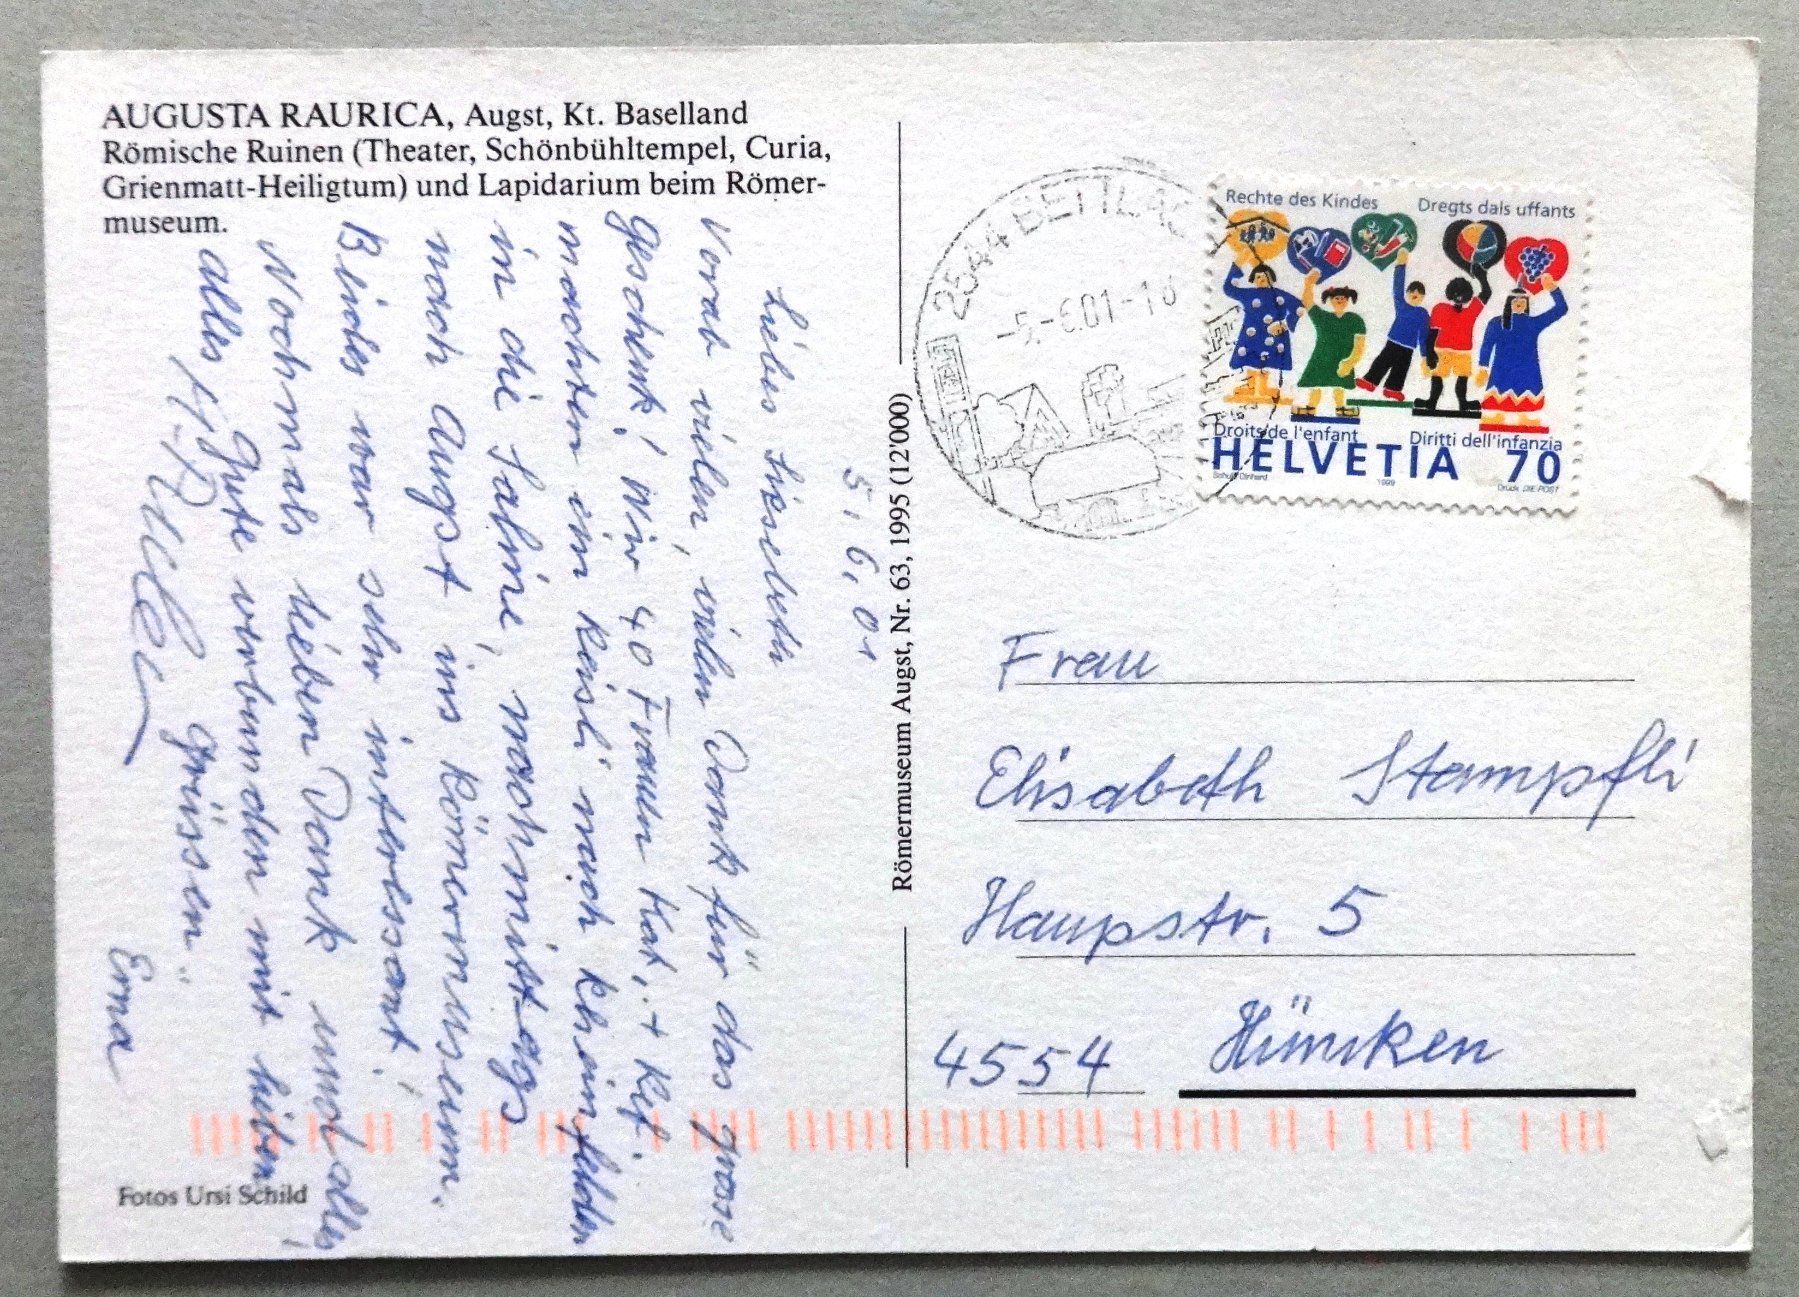 AUGUSTA RAURICA, Augst, Kt. Baselland
Römische Ruinen (Theater, Schönbühltempel, Curia,
Grienmatt-Heiligtum) und Lapidarium beim Römer-
museum.
5.6.01
Liebes Lisebeth
Vorab vielen, vielen Dank für das grosse
geschenk! Wir 40 Frauen Kat, + Ref.
machten ein Reisli nach Rheinfelden
in die Saline, nachmittags
nach Augst ins Römermuseum.
Beides war sehr interessant!
Nochmals lieben Dank und alles
gute verbunden mit lieben
alles grüssen
Erna
Fotos Ursi Schild
Römermuseum Augst, Nr. 63, 1995 (12'000)
2544 BETTLAC
-5.-6.01-
Rechte des Kindes
Dregts dals uffants
Droits de l'enfant
Diritti dell'infanzia
HELVETIA 70
1999
Druck: DIE POST
Frau
Elisabeth Stampfli
Haupstr. 5
4554 Hüniken